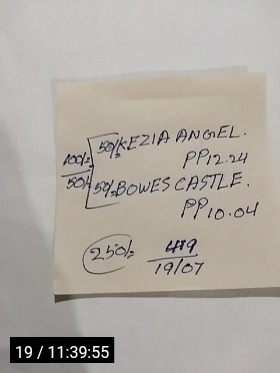 100/= 50/= KEZIA ANGEL.
PP 12.24
50/= 50/= BOWES CASTLE.
PP 10.04
250/= 419
19/07
19 / 11:39:55